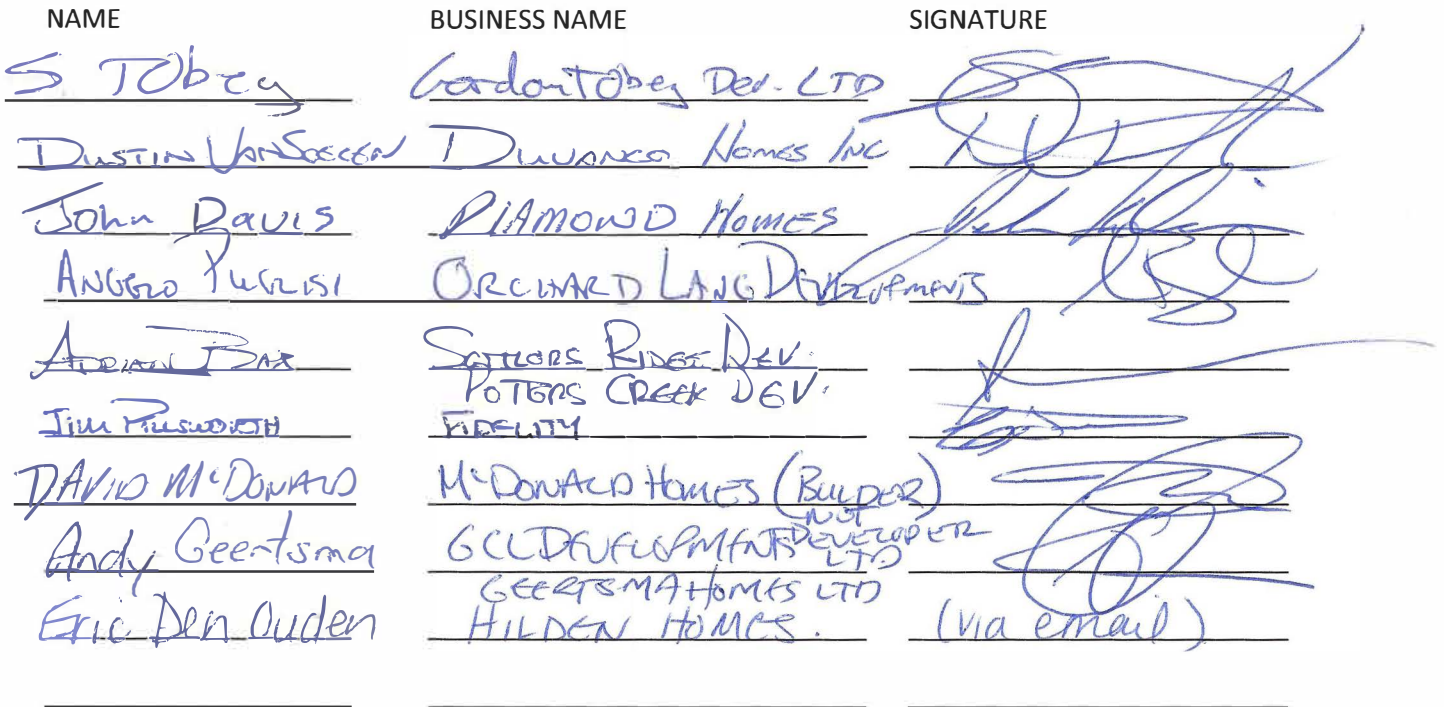 NAME BUSINESS NAME SIGNATURE
S Tobey Gordon Tobey Dev. LTD
DUSTIN DUVANCO Homes INC
John Davis DIAMOND HOMES
ANGELO PUGLISI ORCHARD LANG DEVELOPMENTS
ADRIAN BAX SETTLORS RIDGE DEV.
POTTERS CREEK DEV.
JIM PILLSWORTH FIDELITY
DAVID McDONALD McDONALD HOMES (BUILDER)
NOT DEVELOPER
Andy Geertsma GCL DEVELOPMENTS LTD
GEERTSMA HOMES LTD
Eric Den Ouden HILDEN HOMES. (via email)